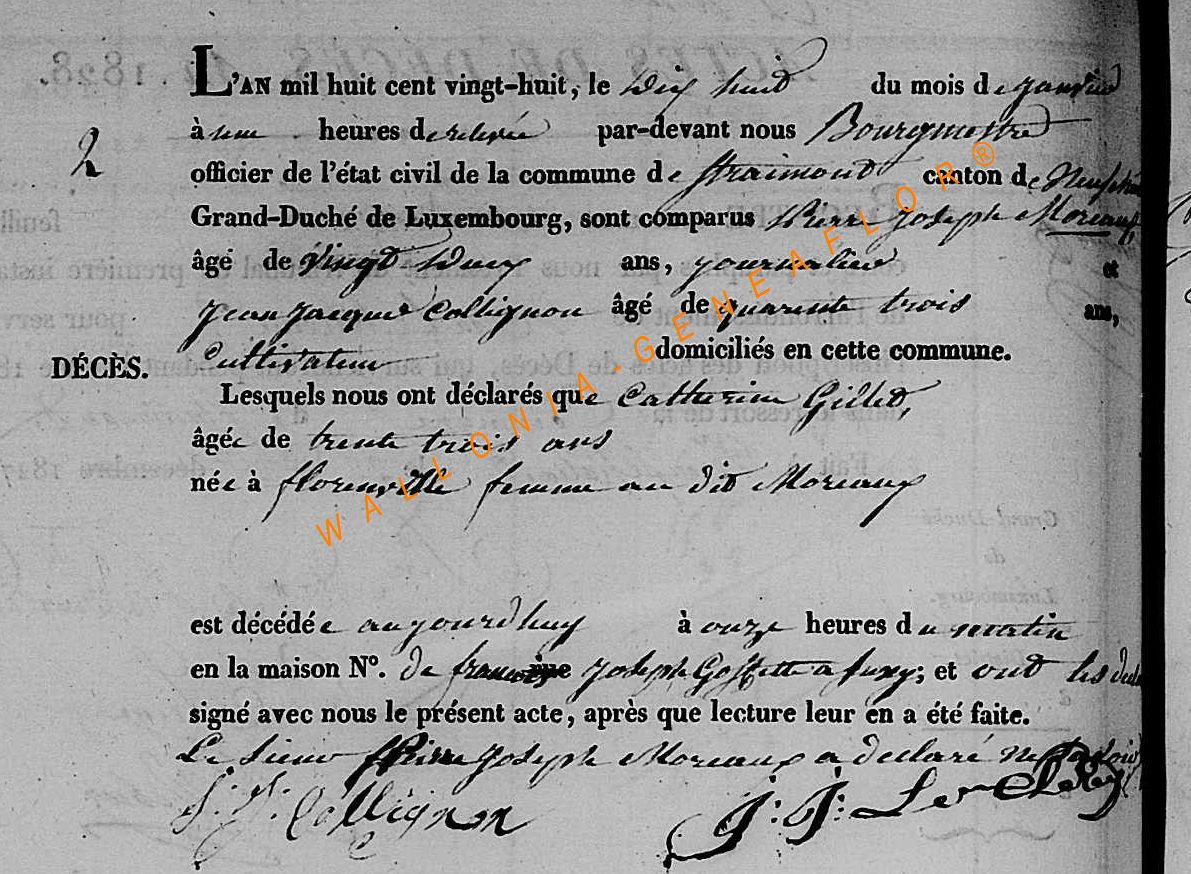 L'AN mil huit cent vingt-huit, le dix huit du mois de janvier
2
à une heures de relevée par-devant nous Bourgmestre
officier de l'état civil de la commune de Straimont canton de Neufchâ
Grand-Duché de Luxembourg, sont comparus Pierre Joseph Moreaux
âgé de vingt deux ans, journalier et
Jean Jacque Collignon âgé de quarente trois ans,
Cultivateur domiciliés en cette commune.
DÉCÈS.
Lesquels nous ont déclarés que Catherine Gillet,
âgée de trente trois ans
née à florenville femme au dit Moreaux
est décédée aujourd'huy à onze heures du matin
en la maison N°. de Joseph a Suxy; et ont les
signé avec nous le présent acte, après que lecture leur en a été faite.
Le Sieur Pierre Joseph Moreaux a declaré ne
J: J: Collignon
J: J: Le
WALLONIA-GENEAFLOR®